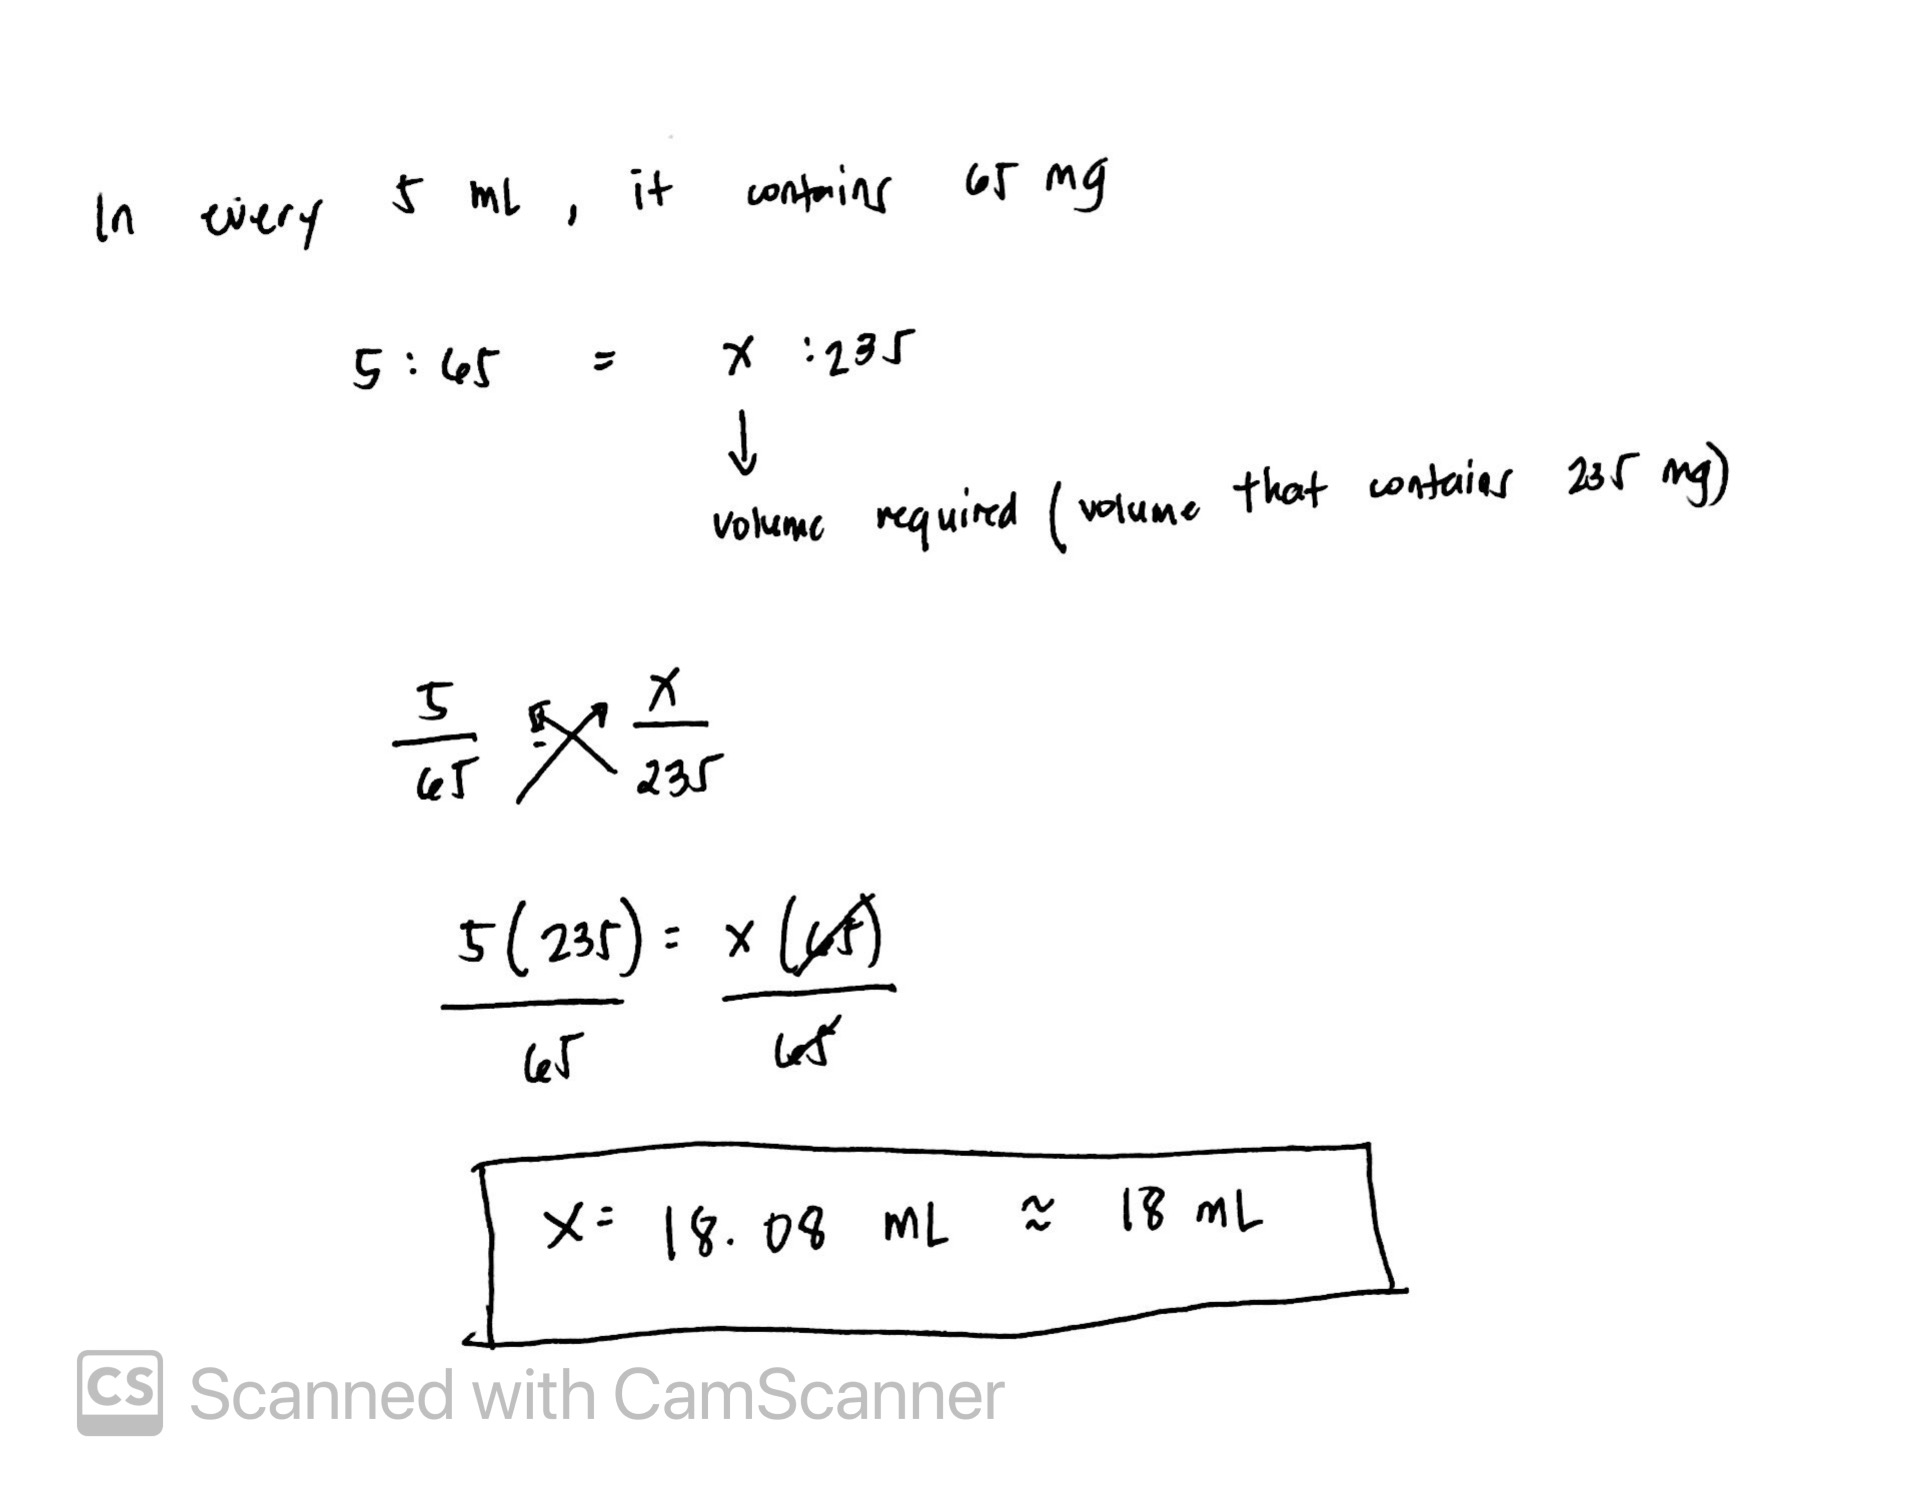 In every 5 mL, it contains 65 mg
5 : 65 = x : 235
↓
volume required (volume that contains 235 mg)
5 x
65 235
5(235) = x(65)
65 65
x = 18.08 mL ≈ 18 mL
CS Scanned with CamScanner